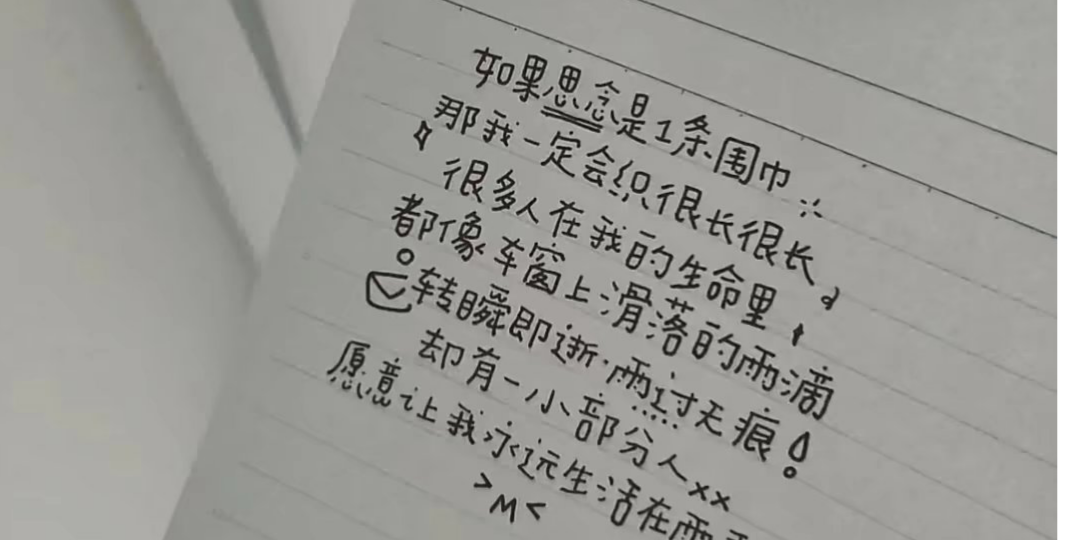 如果思念是1条围巾
那我一定会织很长很长
很多人在我的生命里
都像车窗上滑落的雨滴
转瞬即逝·雨过无痕!
却有一小部分人xx
愿意让我永远生活在雨
>M<